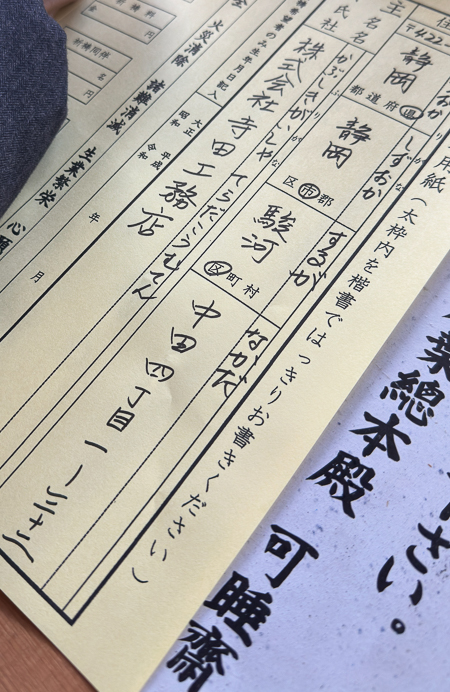 用紙（太枠内を楷書ではっきりお書きください）
住
〒422-
しずおか
静岡 都道府県
しずおか
静岡 区市郡
するが
駿河 区町村
なかだ
中田四丁目一ー
主
氏名
社名
かぶしきがいしゃ てらだこうむてん
株式会社 寺田工務店
生年月日記入
大正 昭和 平成 令和
年
月
火災消除
諸難消滅
生業繁栄
心願
祈祷料
円
祈祷同伴
名
円
葉總本殿 可睡齋
ださい。